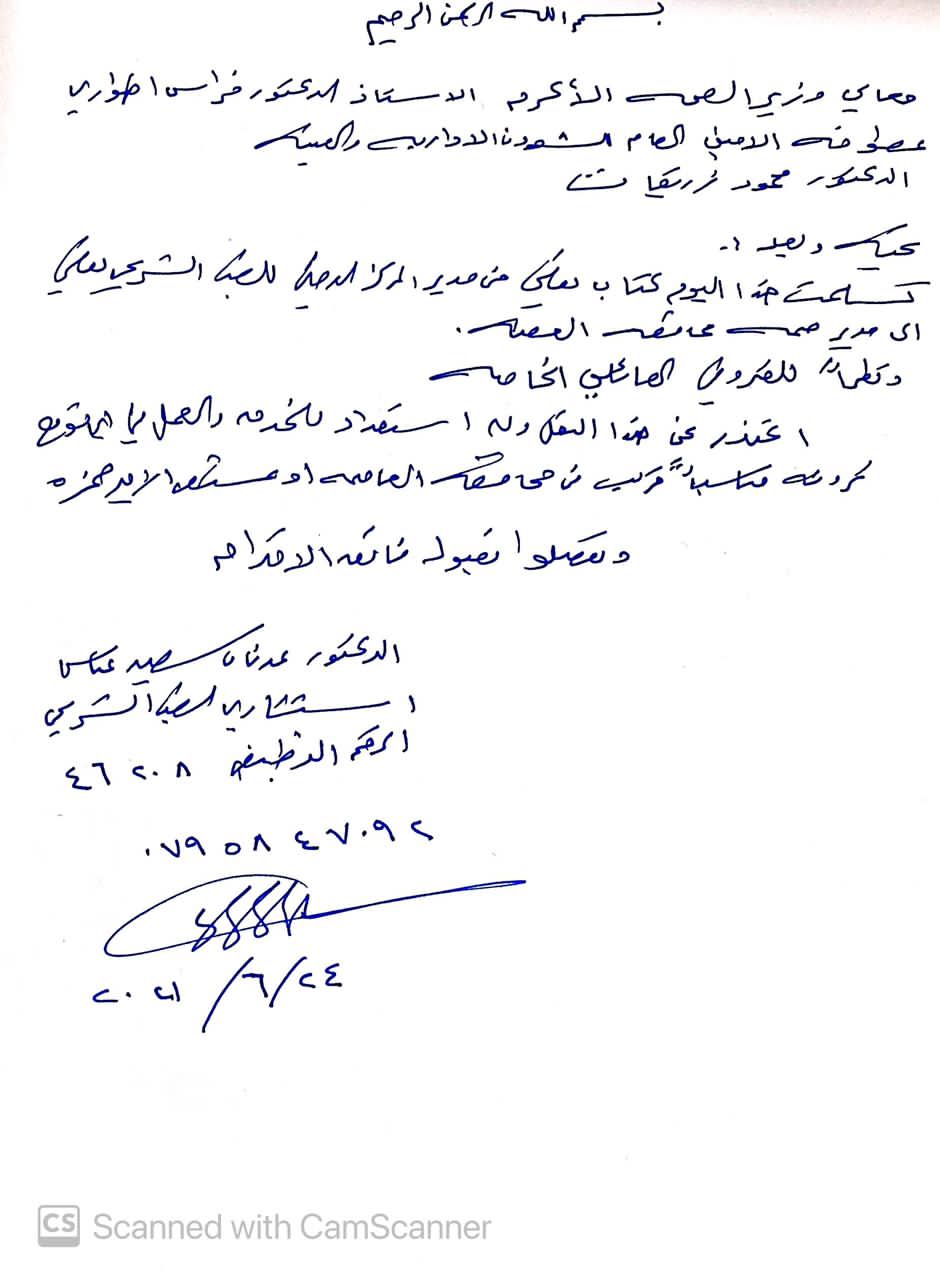 بسم الله الرحمن الرحيم
معالي وزير الصحة الأكرم الاستاذ الدكتور فراس الهواري
عطوفة الامين العام للشؤون الادارية والفنية
الدكتور محمود زريقات
تحية وبعد :-
تسلمت هذا اليوم كتاب نقلي من مدير المركز الوطني للطب الشرعي نقلي
الى مدير صحة محافظة العقبة.
ونظراً للظروف العائلي الخاصة
اعتذر عن هذا النقل وله استعداد للخدمة والعمل باي موقع
ترونه مناسباً قريب من محافظة العاصمة او مستشفى الامير حمزه
وتفضلوا بقبول فائق الاحترام
الدكتور عدنان سعيد عباس
استشاري الطب الشرعي
الرقم الوظيفي ٤٦٢٠٨
٠٧٩٥٨٤٧٠٩٢
٢٠٢١/٦/٢٤
CS Scanned with CamScanner